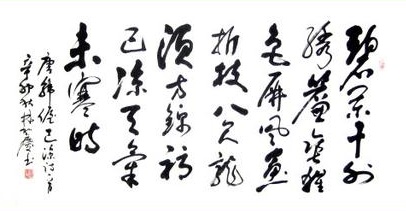 碧闌干外
繡簾垂猩
色屏風畫
折枝八尺龍
須方錦褥
已涼天氣
未寒時
唐韓偓已涼詩一首
辛卯秋林慶書